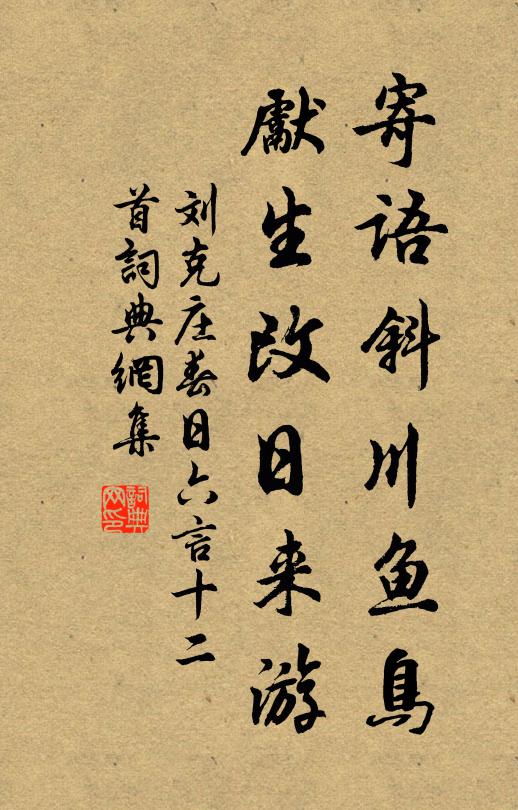 寄語斜川鱼鳥
獻生改日来游
刘克庄春日六言十二
首詞典網集
詞典
网印